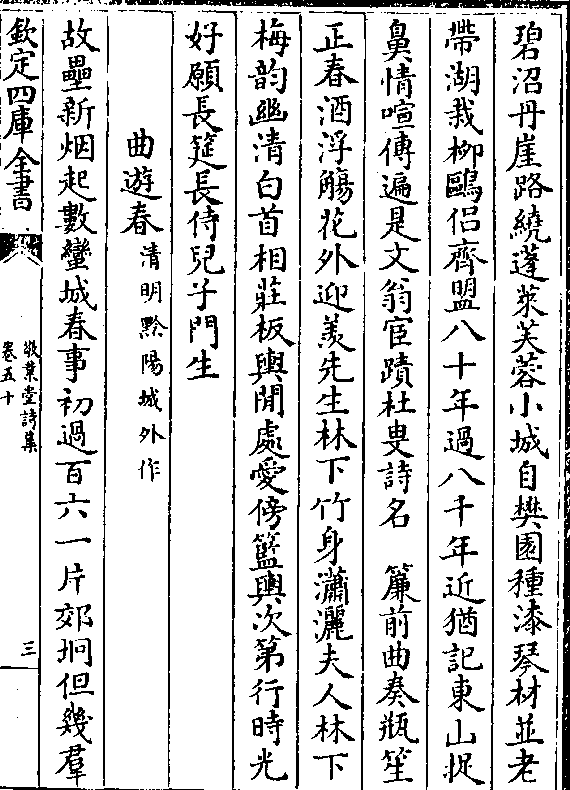 碧沼丹崖路繞蓬萊芙蓉小城自樊園種漆琴材並老
帶湖栽柳鷗侣齊盟八十年過八千年近猶記東山捉
鼻情喧傳遍是文翁宦蹟杜叟詩名　簾前曲奏瓶笙
正春酒浮觴花外迎羨先生林下竹身瀟灑夫人林下
梅韵幽清白首相莊板輿閒處愛傍籃輿次第行時光
好願長筵長侍兒子門生
曲遊春清明黔陽城外作
故壘新烟起數蠻城春事初過百六一片郊坰但幾羣
欽定四庫全書
敬業堂詩集
卷五十
三